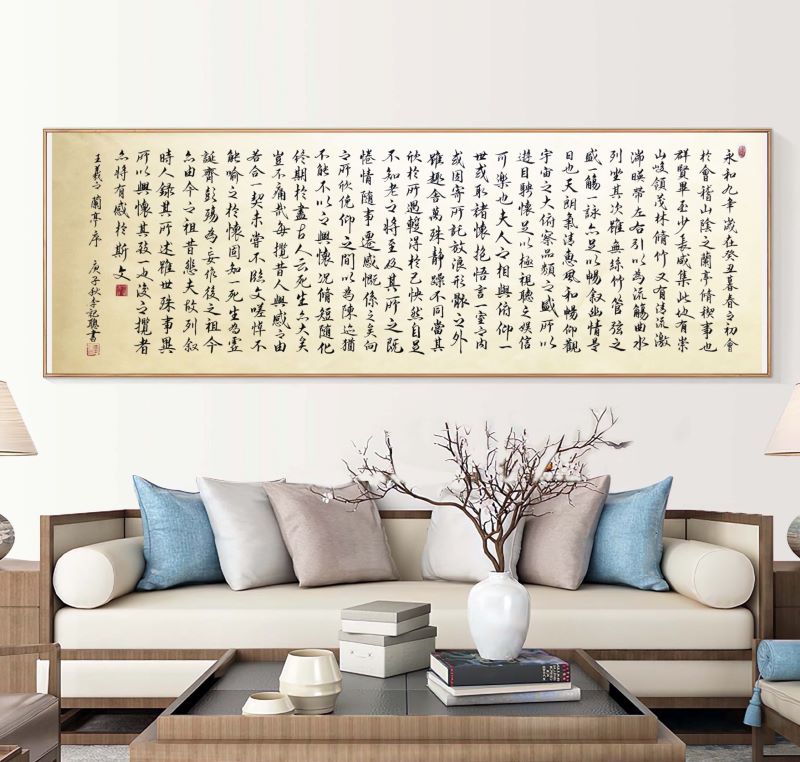 永和九年歲在癸丑暮春之初會
於會稽山陰之蘭亭脩稧事也
群賢畢至少長咸集此地有崇
山峻領茂林脩竹又有清流激
湍暎帶左右引以為流觴曲水
列坐其次雖無絲竹管弦之
盛一觴一詠亦足以暢叙幽情是
日也天朗氣清惠風和暢仰觀
宇宙之大俯察品類之盛所以
遊目騁懷足以極視聽之娛信
可樂也夫人之相與俯仰一
世或取諸懷抱悟言一室之內
或因寄所託放浪形骸之外
雖趣舍萬殊靜躁不同當其
欣於所遇蹔得於己怏然自足
不知老之將至及其所之既
惓情隨事遷感慨係之矣向
之所欣俛仰之間以為陳迹猶
不能不以之興懷況脩短隨化
終期於盡古人云死生亦大矣
豈不痛哉每攬昔人興感之由
若合一契未嘗不臨文嗟悼不
能喻之於懷固知一死生為虛
誕齊彭殤為妄作後之視今
亦由今之視昔悲夫故列叙
時人錄其所述雖世殊事異
所以興懷其致一也後之攬者
亦將有感於斯文
王羲之蘭亭序 庚子秋李記聰書